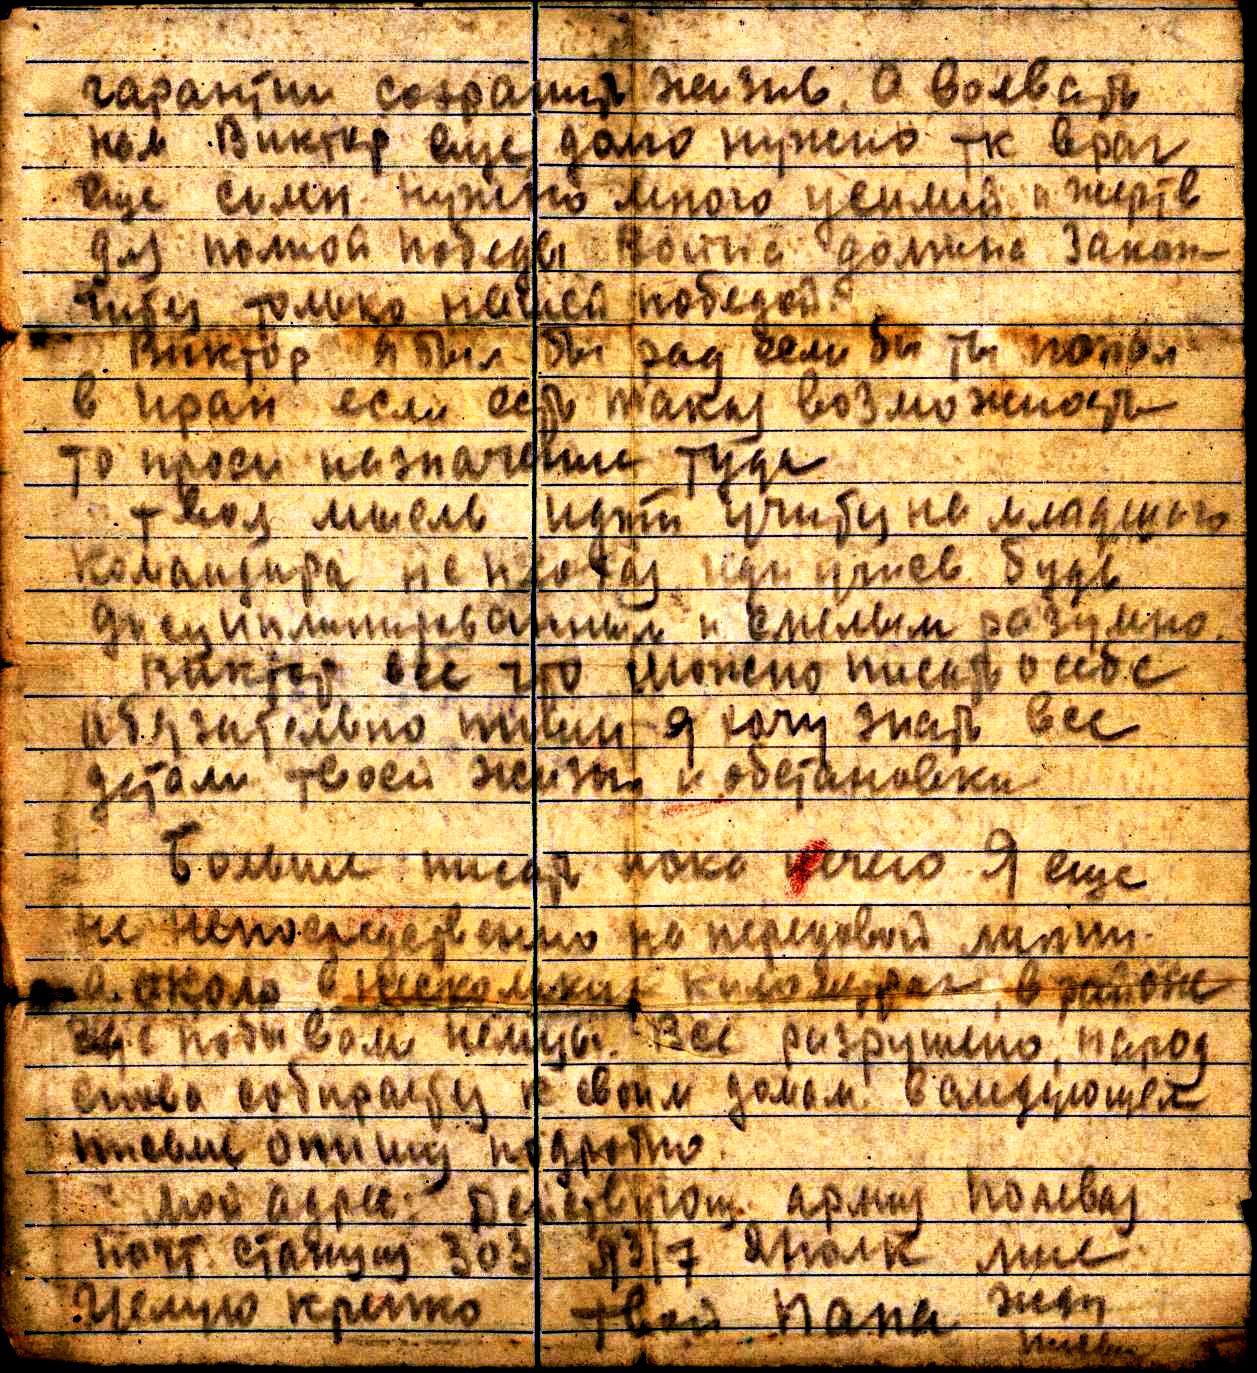 гарантии сохранить жизнь. А воевать
нам Виктор еще долго нужно тк враг
еще силен нужно много усилий и жертв
для полной победы Война должна закон-
читься только нашей победой.
Виктор я был бы рад если бы ты попал
в Иран если есть такая возможность
то проси назначение туда
твоя мысль идти учиться на младшего
командира не плохая иди учись будь
дисциплинированным и смелым разумно.
Виктор все что можно писать о себе
обязательно пиши я хочу знать все
детали твоей жизни и обстановки
Больше писать пока нечего Я еще
не непосредственно на передовой линии
а около в нескольких километрах, в районе
где побывали немцы. Все разрушено, народ
снова собирается к своим домам. в следующем
письме опишу подробно
Мой адрес: Действующ. армия Полевая
почт. станция 303 полк мне
Целую крепко твой папа жду
письм